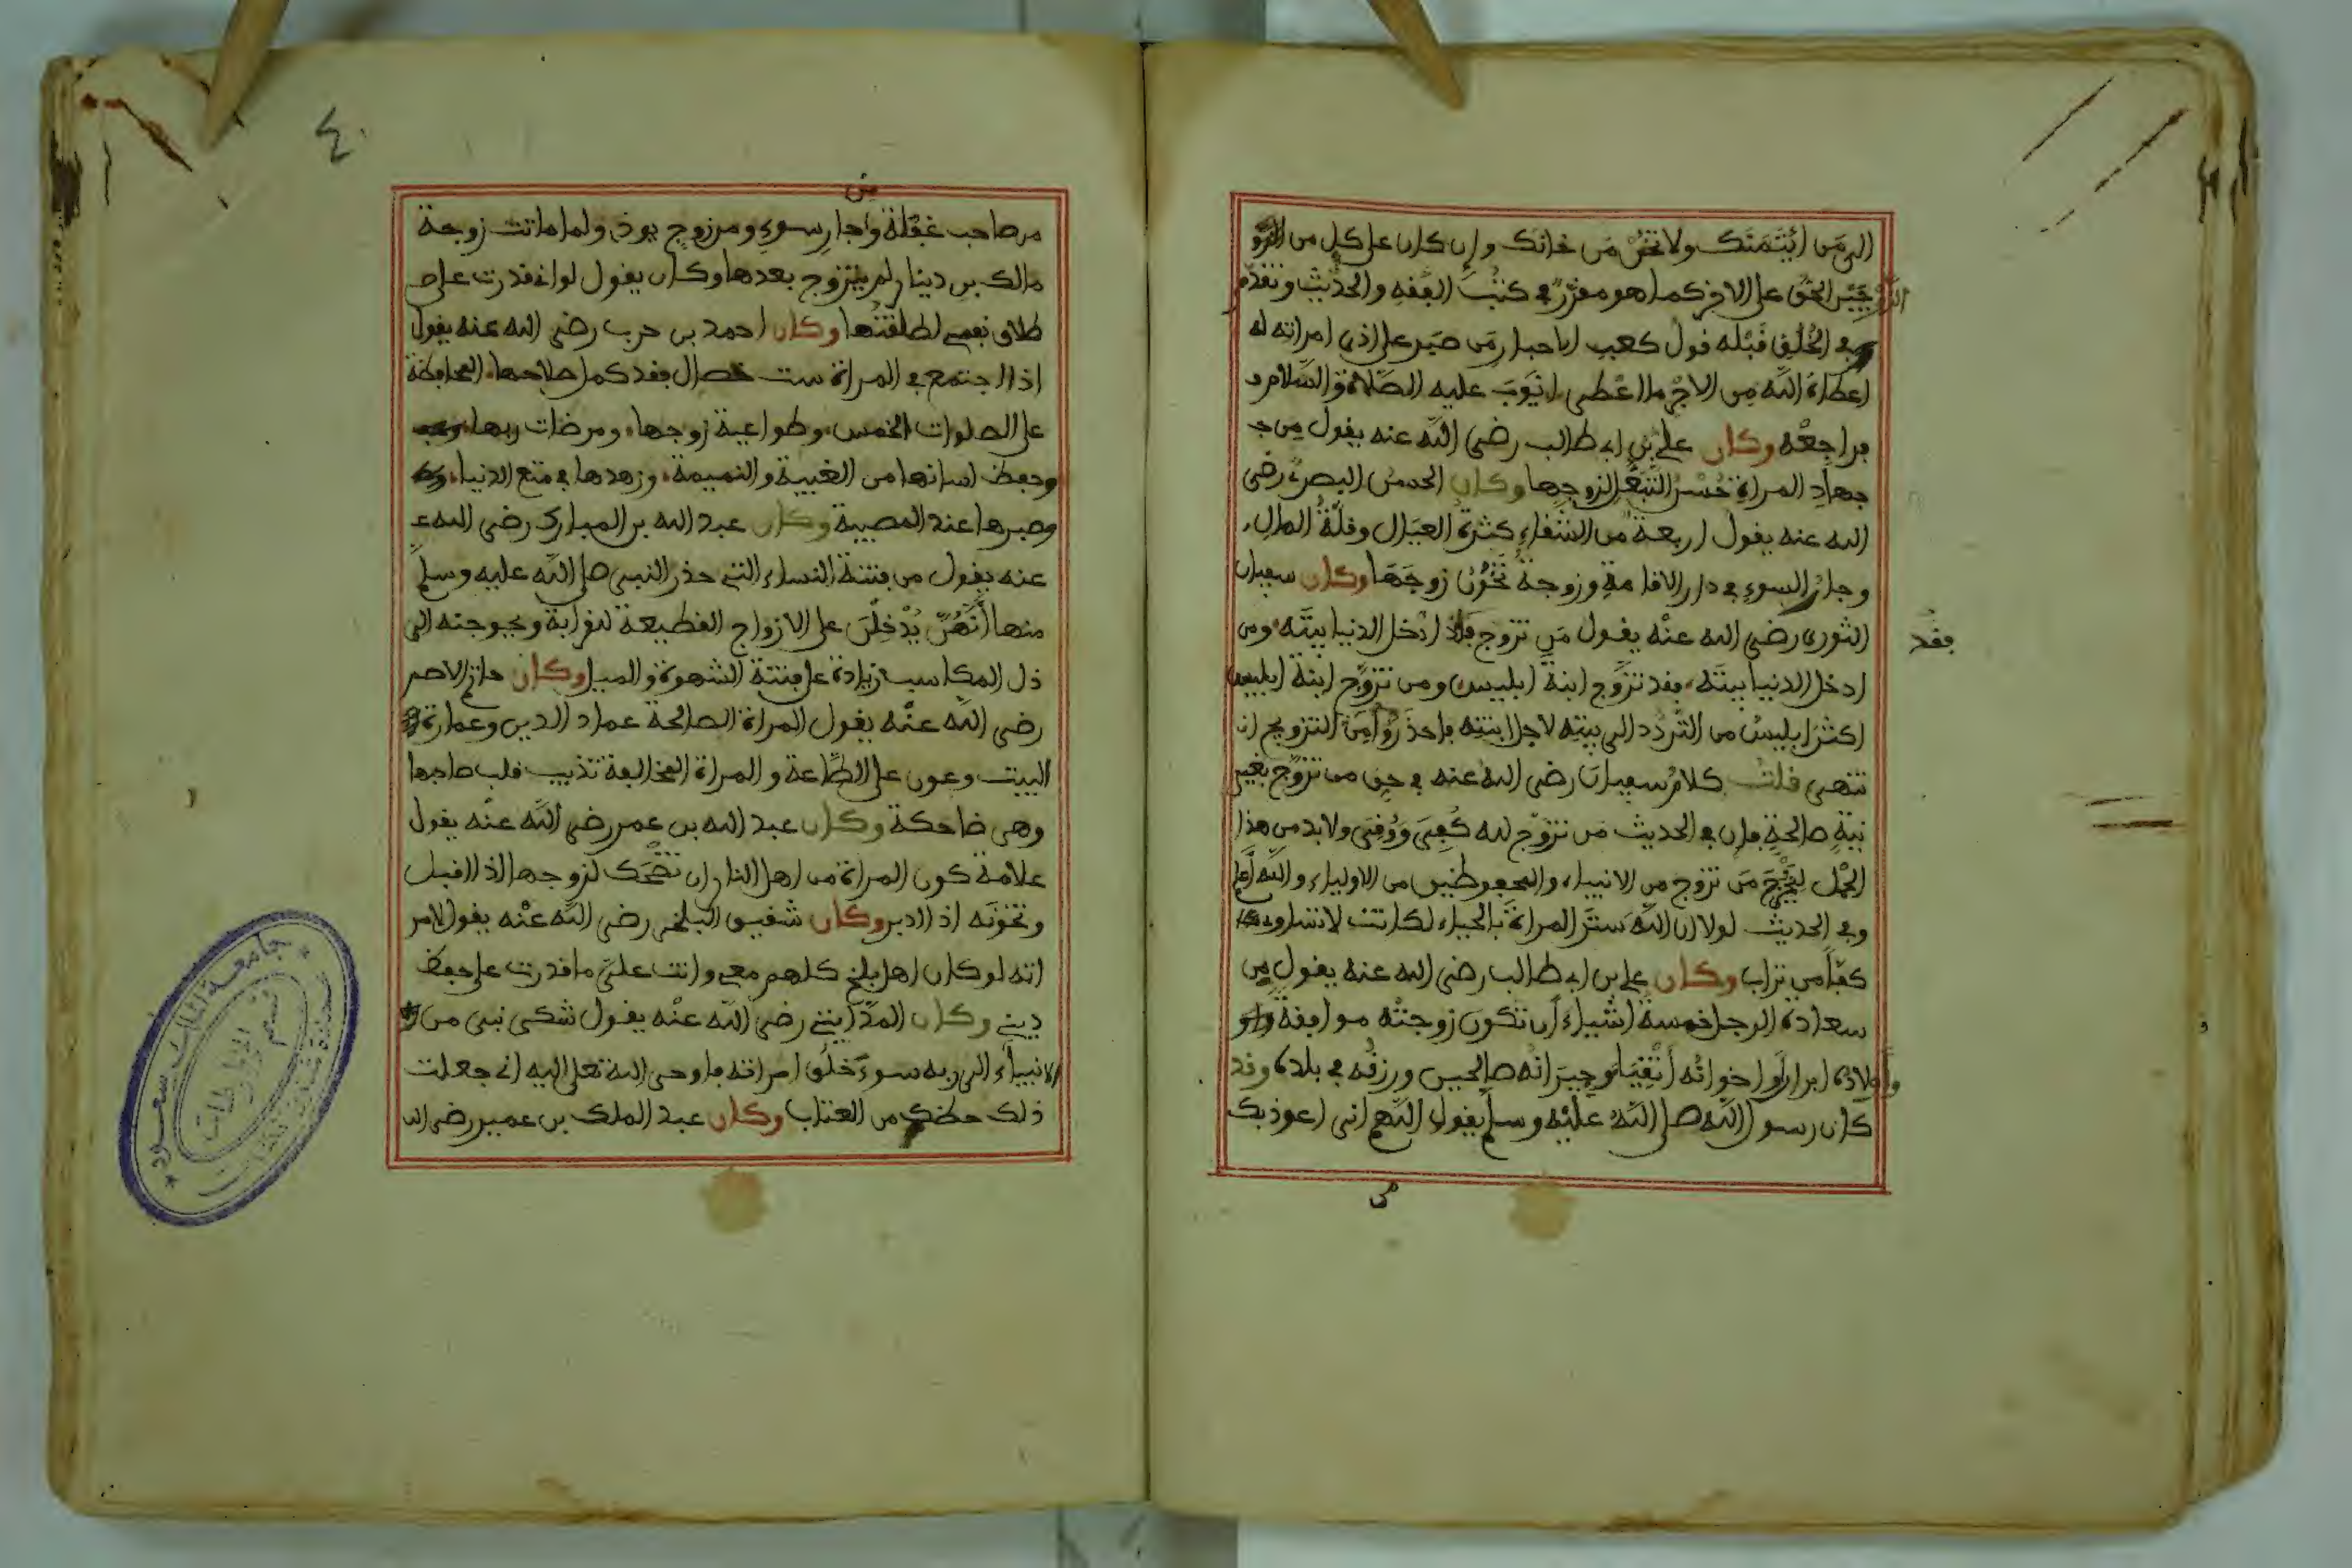 الى من ائتمنك ولا تخن من خانك وان كان على كل من
الزوجين الحق على الاخر كما هو مقرر في كتب الفقه والحديث وتقدم
في الخلق قبله قول كعب الاحبار من صبر على اذى امراته
اعطاه الله من الاجر ما اعطى ايوب عليه الصلاة والسلام
فراجعه وكان علي بن ابي طالب رضي الله عنه يقول من
جهاد المراة حسن التبعل لزوجها وكان الحسن البصري رضي
الله عنه يقول اربعة من الشقاء كثرة العيال وقلة المال
وجار السوء في دار الاقامة وزوجة تخون زوجها وكان سفيان
الثوري رضي الله عنه يقول من تزوج فقد ادخل الدنيا بيته ومن
فقد
ادخل الدنيا بيته فقد تزوج ابنة ابليس ومن تزوج ابنة ابليس
اكثر ابليس من التردد الى بيته لاجل ابنته فاحذروا من التزويج
انتهى قلت كلام سفيان رضي الله عنه في حق من تزوج بغير
نية صالحة فان في الحديث من تزوج لله كفي ووقي ولا بد من هذا
الحمل ليخرج من تزوج من الانبياء والمحفوظين من الاولياء والله اعلم
وفي الحديث لولا ان الله ستر المراة بالحياء لكانت لا تساوي
كفا من تراب وكان علي بن ابي طالب رضي الله عنه يقول من
سعادة الرجل خمسة اشياء ان تكون زوجته موافقة
واولاده ابرارا واخوانه اتقياء وجيرانه صالحين ورزقه في بلده وقد
كان رسول الله صلى الله عليه وسلم يقول اللهم اني اعوذ بك
من
٤٠
من صاحب غفلة وجار سوء ومن زوج يوذي ولما ماتت زوجة
مالك بن دينار لم يتزوج بعدها وكان يقول لو اني قدرت على
طلاق نفسي لطلقتها وكان احمد بن حرب رضي الله عنه يقول
اذا اجتمع في المراة ست خصال فقد كمل صلاحها المحافظة
على الصلوات الخمس وطواعية زوجها ومرضات ربها
وحفظ لسانها من الغيبة والنميمة وزهدها في متع الدنيا
وصبرها عند المصيبة وكان عبد الله بن المبارك رضي الله
عنه يقول من فتنة النساء التي حذر النبي صلى الله عليه وسلم
منها انهن يدخلن على الازواج القطيعة للقرابة ويحوجنه الى
ذل المكاسب زيادة على فتنة الشهوة والميل وكان حاتم الاصم
رضي الله عنه يقول المراة الصالحة عماد الدين وعمارة
البيت وعون على الطاعة والمراة المخالفة تذيب قلب صاحبها
وهي ضاحكة وكان عبد الله بن عمر رضي الله عنه يقول
علامة كون المراة من اهل النار ان تضحك لزوجها اذا اقبل
وتخونه اذا ادبر وكان شقيق البلخي رضي الله عنه يقول لامر
اته لو كان اهل بلخ كلهم معي وانت علي ما قدرت على حفظ
ديني وكان المدايني رضي الله عنه يقول شكى نبي من
الانبياء الى ربه سوء خلق امراته فاوحى الله تعلى اليه اني جعلت
ذلك حظك من العذاب وكان عبد الملك بن عمير رضي الله
جامعة الملك سعود
قسم المخطوطات